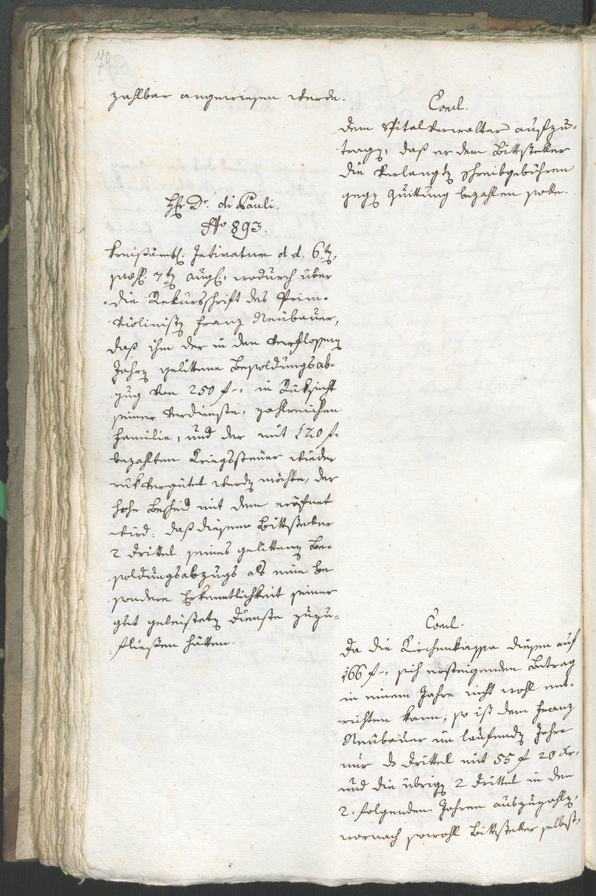 70
zahlbar angewiesen werde.
Concl.
dem Spitalverwalter aufzu-
tragen, daß er dem Bittsteller
die verlangten Schreibgebühren
gegen Quittung bezahlen solle.
Hr. Dr. di Pauli.
No 893.
Kreisämtl. Intimatum d. d. 6ten,
7ten Aug., wodurch über
die Rekursschrift des Prim-
Violinisten Franz Neubauer,
daß ihm der in den verflossenen
Jahren gelittene Besoldungsab-
zug von 250 f., in Rücksicht
seiner Verdienste, zahlreichen
Familie, und der mit 120 f.
bezahlten Kriegssteuer wieder
rückvergütet werden möchte, der
hohe Bescheid mit dem eröfnet
wird: daß diesem Bittsteller
2 Drittel seines gelittenen Be-
soldungsabzugs als eine be-
sondere Erkenntlichkeit seiner
gut geleisteten Dienste zuzu-
fließen hätten.
Concl.
Da die Kirchenkassa diesen auf
166 f. sich ersteigenden Betrag
in einem Jahre nicht wohl ent-
richten kann; so ist dem Franz
Neubauer im laufenden Jahre
nur Drittel mit 55 f 20 xr,
und die übrigen 2 Drittel in den
2. folgenden Jahren auszuzahlen,
wornach sowohl Bittsteller selbst,